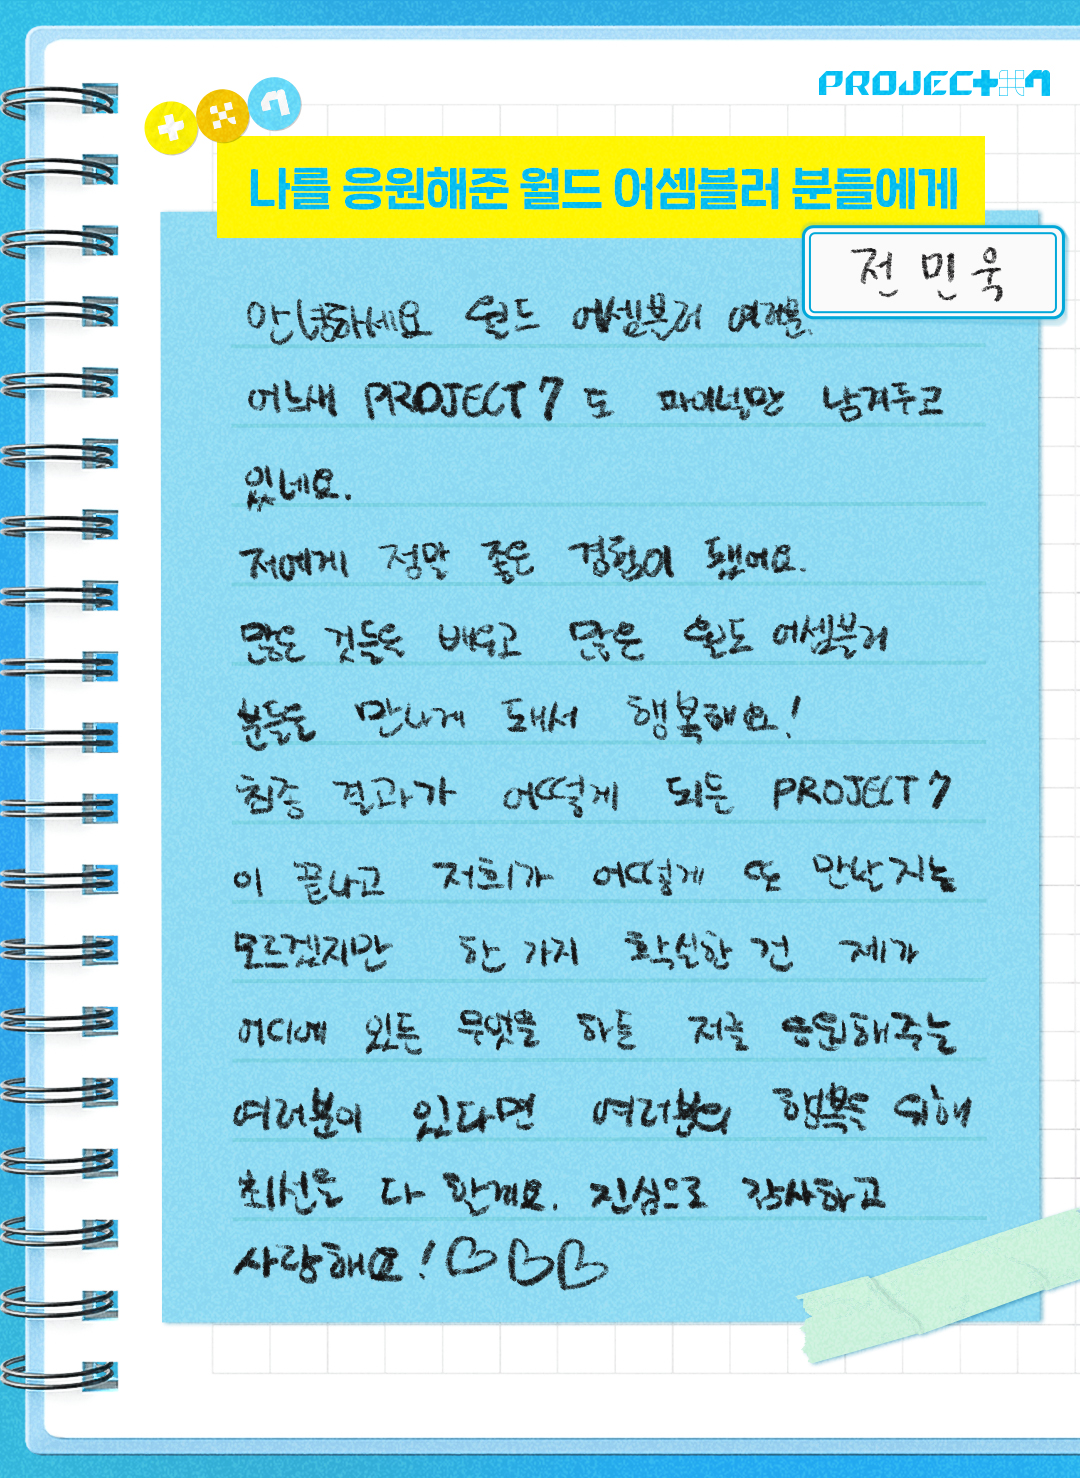 PROJECT7
나를 응원해준 월드 어셈블러 분들에게
전민욱
안녕하세요 월드 어셈블러 여러분.
어느새 PROJECT7 도 파이널만 남겨두고
있네요.
저에게 정말 좋은 경험이 됐어요.
많은 것들을 배우고 많은 월드 어셈블러
분들을 만나게 돼서 행복해요!
최종 결과가 어떻게 되든 PROJECT7
이 끝나고 저희가 어떻게 또 만날지는
모르겠지만 한 가지 확실한 건 제가
어디에 있든 무엇을 하든 저를 응원해주는
여러분이 있다면 여러분의 행복을 위해
최선을 다 할게요. 진심으로 감사하고
사랑해요!♡♡♡